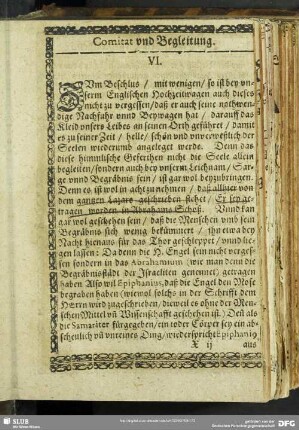 Comitat vnd Begleitung.
VI.
ZVm Beschlus / mit wenigen / so ist bey vn-
serm Englischen Hochzeitwagen auch dieses
nicht zu vergessen / daß er auch seine nothwen-
dige Nachfahr vnnd Beywagen hat / darauff das
Kleid vnsers Leibes an seinen Orth geführet / damit
es zu seiner Zeit / helle / schön vnd vnverweßlich der
Seelen wiederumb angeleget werde. Denn das
diese himmlische Geferthen nicht die Seele allein
begleiten / sondern auch bey vnserm Leichnam / Sar-
ge vnnd Begräbnis sein / ist gar wol beyzubringen.
Denn es ist wol in acht zu nehmen / daß alhier von
dem gantzen Lazaro geschrieben stehet / Er sey ge-
tragen worden in Abrahams Schoß. Vnnd kan
gar wol geschehen sein / daß die Menschen vmb sein
Begräbnis sich wenig bekümmert / ihn etwa bey
Nacht hienaus für das Thor geschleppet / vnnd lie-
gen lassen: Da denn die H. Engel sein nicht verges-
sen sondern in das Abrahamium (wie man denn die
Begräbnisstädt der Israeliten genennet) getragen
haben Also wil Epiphanius, daß die Engel den Mose
begraben haben (wiewol solchs in der Schrifft dem
Herrn wird zugeschrieben, dieweil es ohne der Men-
schen Mittel vñ Wissenschafft geschehen ist.) Deñ als
die Samaritær fürgegeben / ein todter Cörper sey ein ab-
schenlich vñ vnreines Ding / wiederspricht Epiphaniꝰ
X ij aus
SLUB
DFG